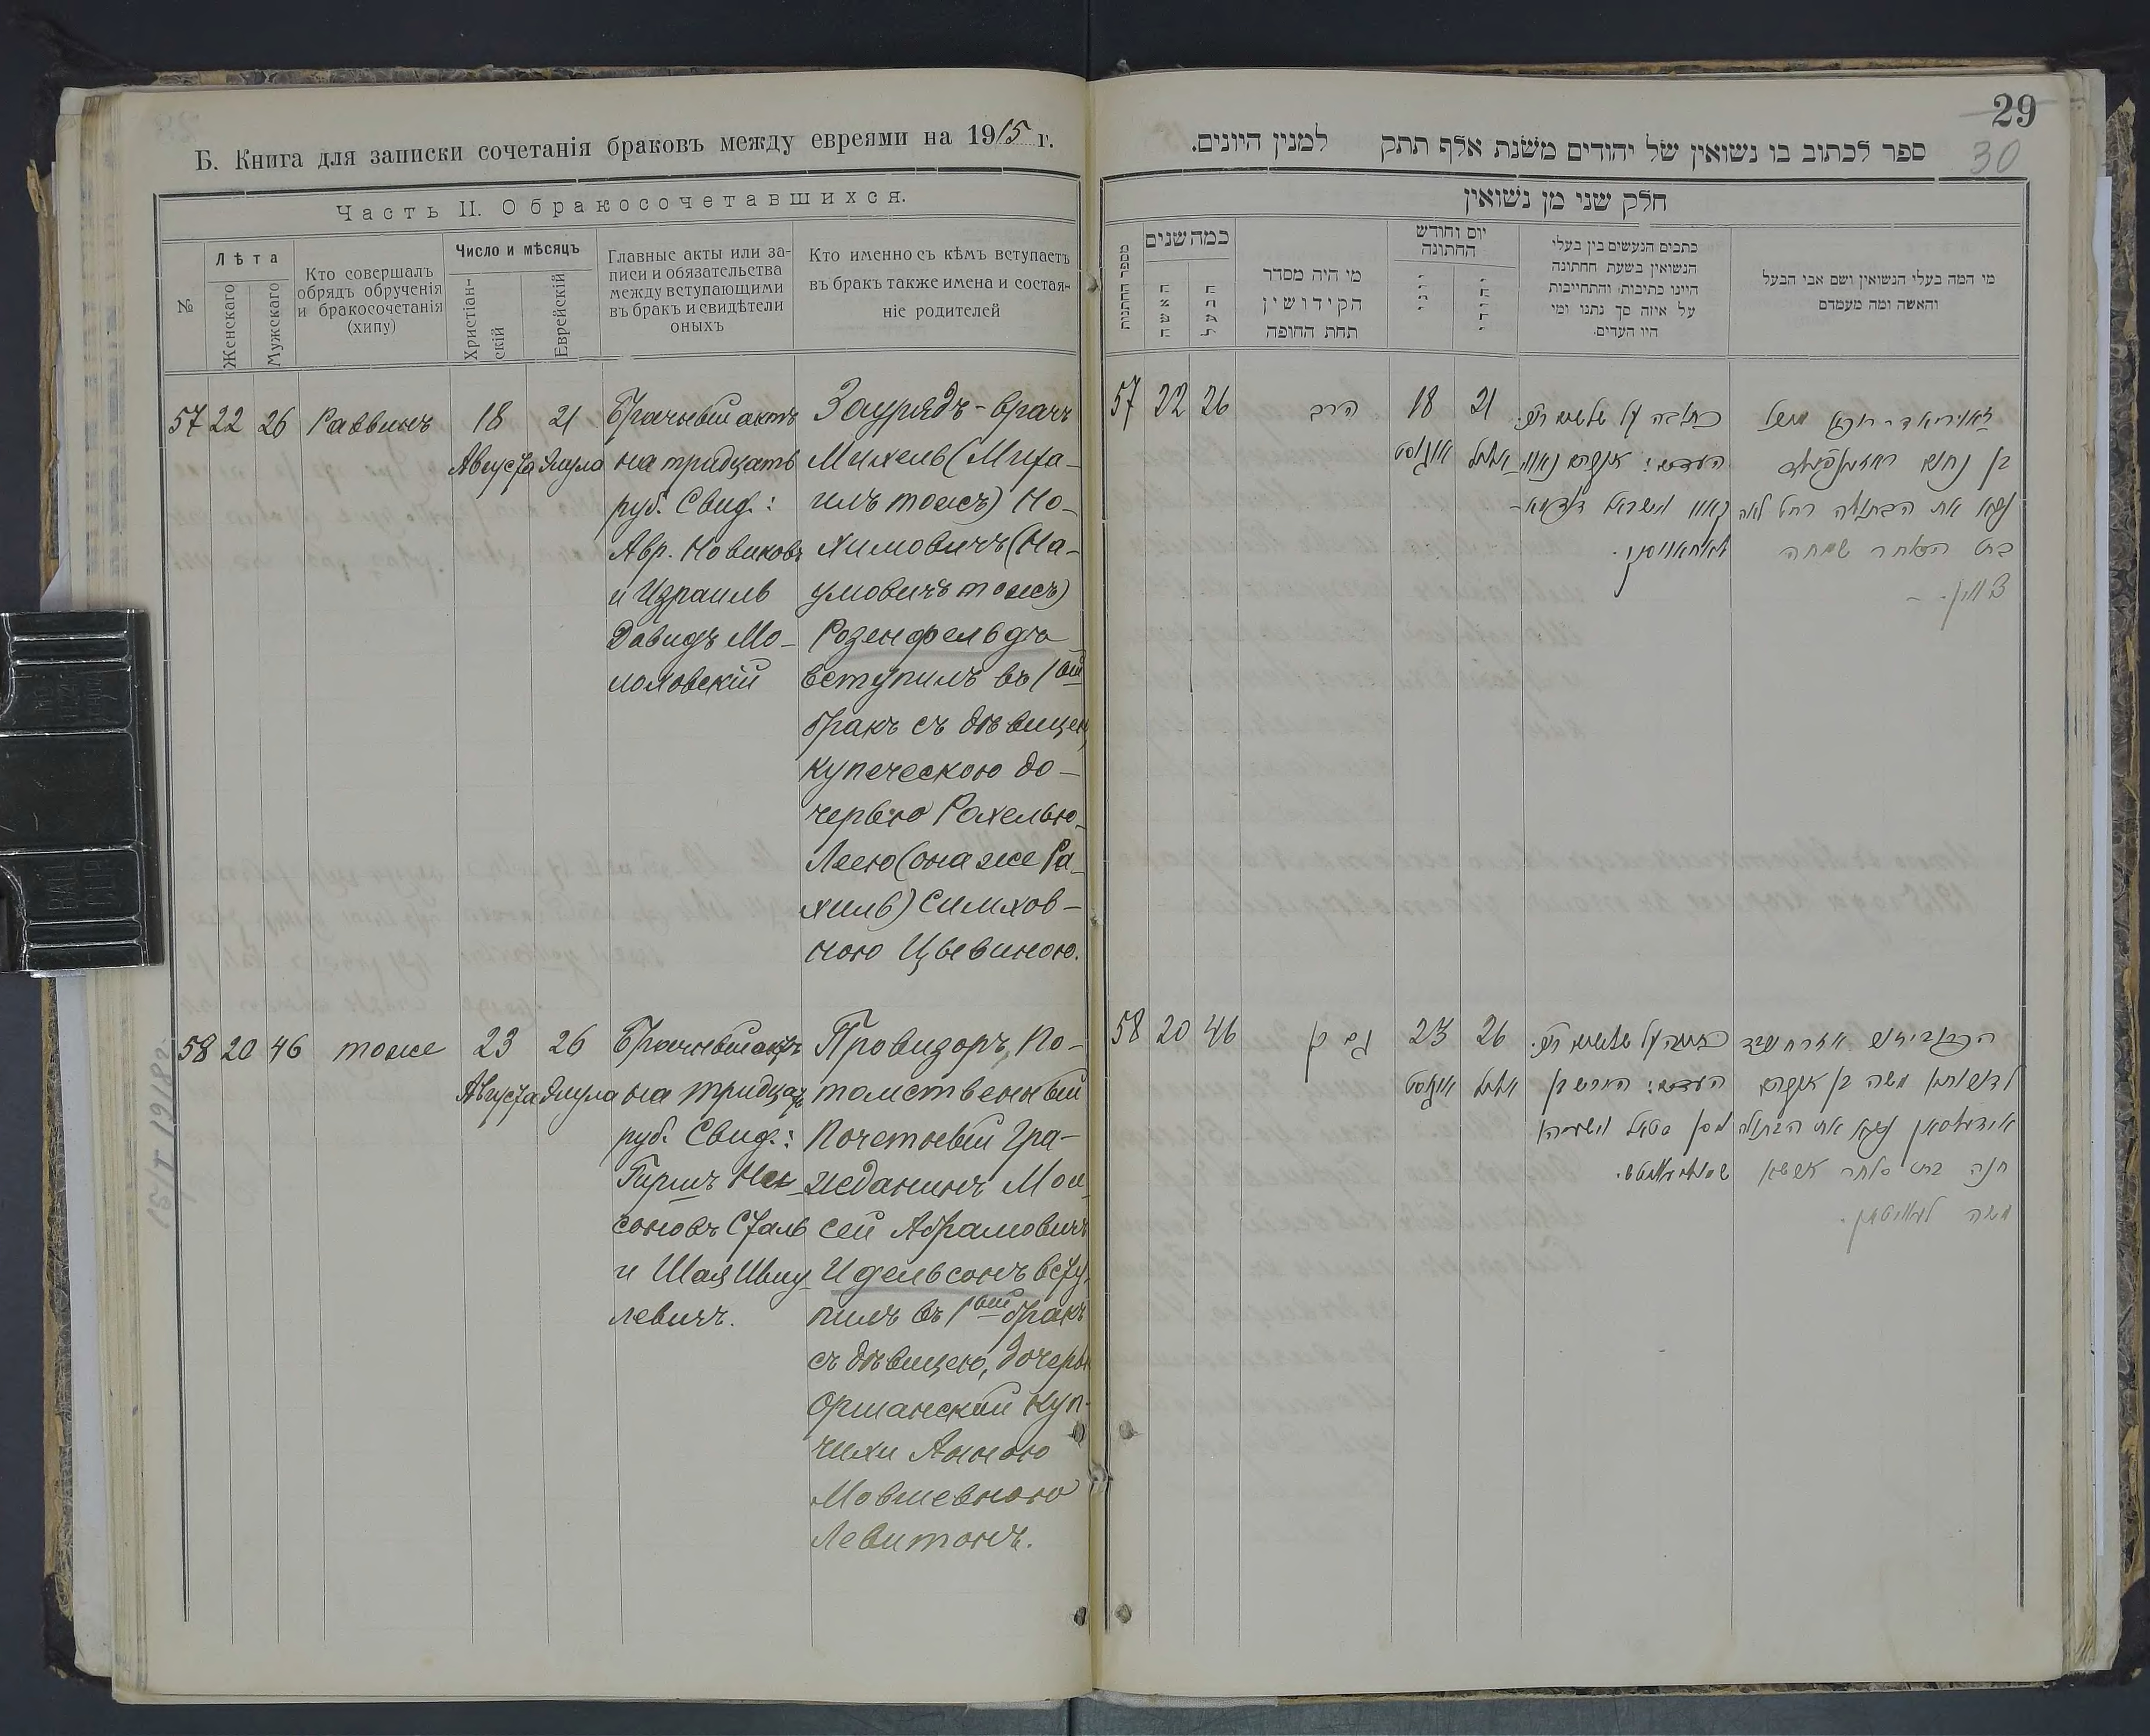 Б. Книга для записки сочетанія браковъ между евреями на 1915 г.
Часть II. О бракосочетавшихся.
№
Лѣта
Женскаго
Мужскаго
Кто совершалъ
обрядъ обрученія
и бракосочетанія
(хипу)
Число и мѣсяцъ
Христіан-
скій
Еврейскій
Главные акты или за-
писи и обязательства
между вступающими
въ бракъ и свидѣтели
оныхъ
Кто именно съ кѣмъ вступаетъ
въ бракъ также имена и состоя-
ніе родителей
57 22 26 Раввинъ
18
Августа
21
Элула
Брачный актъ
на тридцать
руб. Свид.:
Авр. Новиковъ
и Израиль
Давидъ Мо-
лоховскій
Зауряд-врачъ
Михель (Миха-
илъ тожъ) Но-
химовичъ (На-
умовичъ тожъ)
Розенфельдъ
вступилъ въ 1ый
бракъ съ дѣвицею,
купеческою до-
черью Рохелью-
Леею (она же Ра-
хиль) Симхов-
ною Цывиною.
58 20 46 тоже
23
Августа
26
Элула
Брачный актъ
на тридцать
руб. Свид.:
Гиршъ
соновъ Сталь
и Шая Шму-
левичъ.
Провизоръ, По-
томственный
Почетный Гра-
жданинъ Мои-
сей Абрамовичъ
Идельсонъ всту-
пилъ въ 1ый бракъ
съ дѣвицею, дочерью
Оршанской куп-
чихи Анною
Мовшевною
Левитонъ.
29
30
ספר לכתוב בו נשואין של יהודים משנת אלף תתק למנין היונים.
חלק שני מן נשואין
מספר החתונות
כמה שנים
האשה
הבעל
מי היה מסדר
הקידושין
תחת החופה
יום וחודש
החתונה
יוני
יהודי
כתבים הנעשים בין בעלי
הנשואין בשעת חחתונה
היינו כתיבות והתחייבות
על איזה סך נתנו ומי
היו העדים.
מי המה בעלי הנשואין ושם אבי הבעל
והאשה ומה מעמדם
57 22 26
הרב
18
אוגוסט
21
אלול
כתובה על שלשים רו״כ.
העדים:
בן נחום
נשא את הבתולה רחל לאה
בת הסוחר שמחה
ציווין.
58 20 46
גם כן
23
אוגוסט
26
אלול
כתובה על שלשים רו״כ.
העדים:
משה בן אברהם
נשא את הבתולה
חנה בת סוחר
משה לעוויטאן.